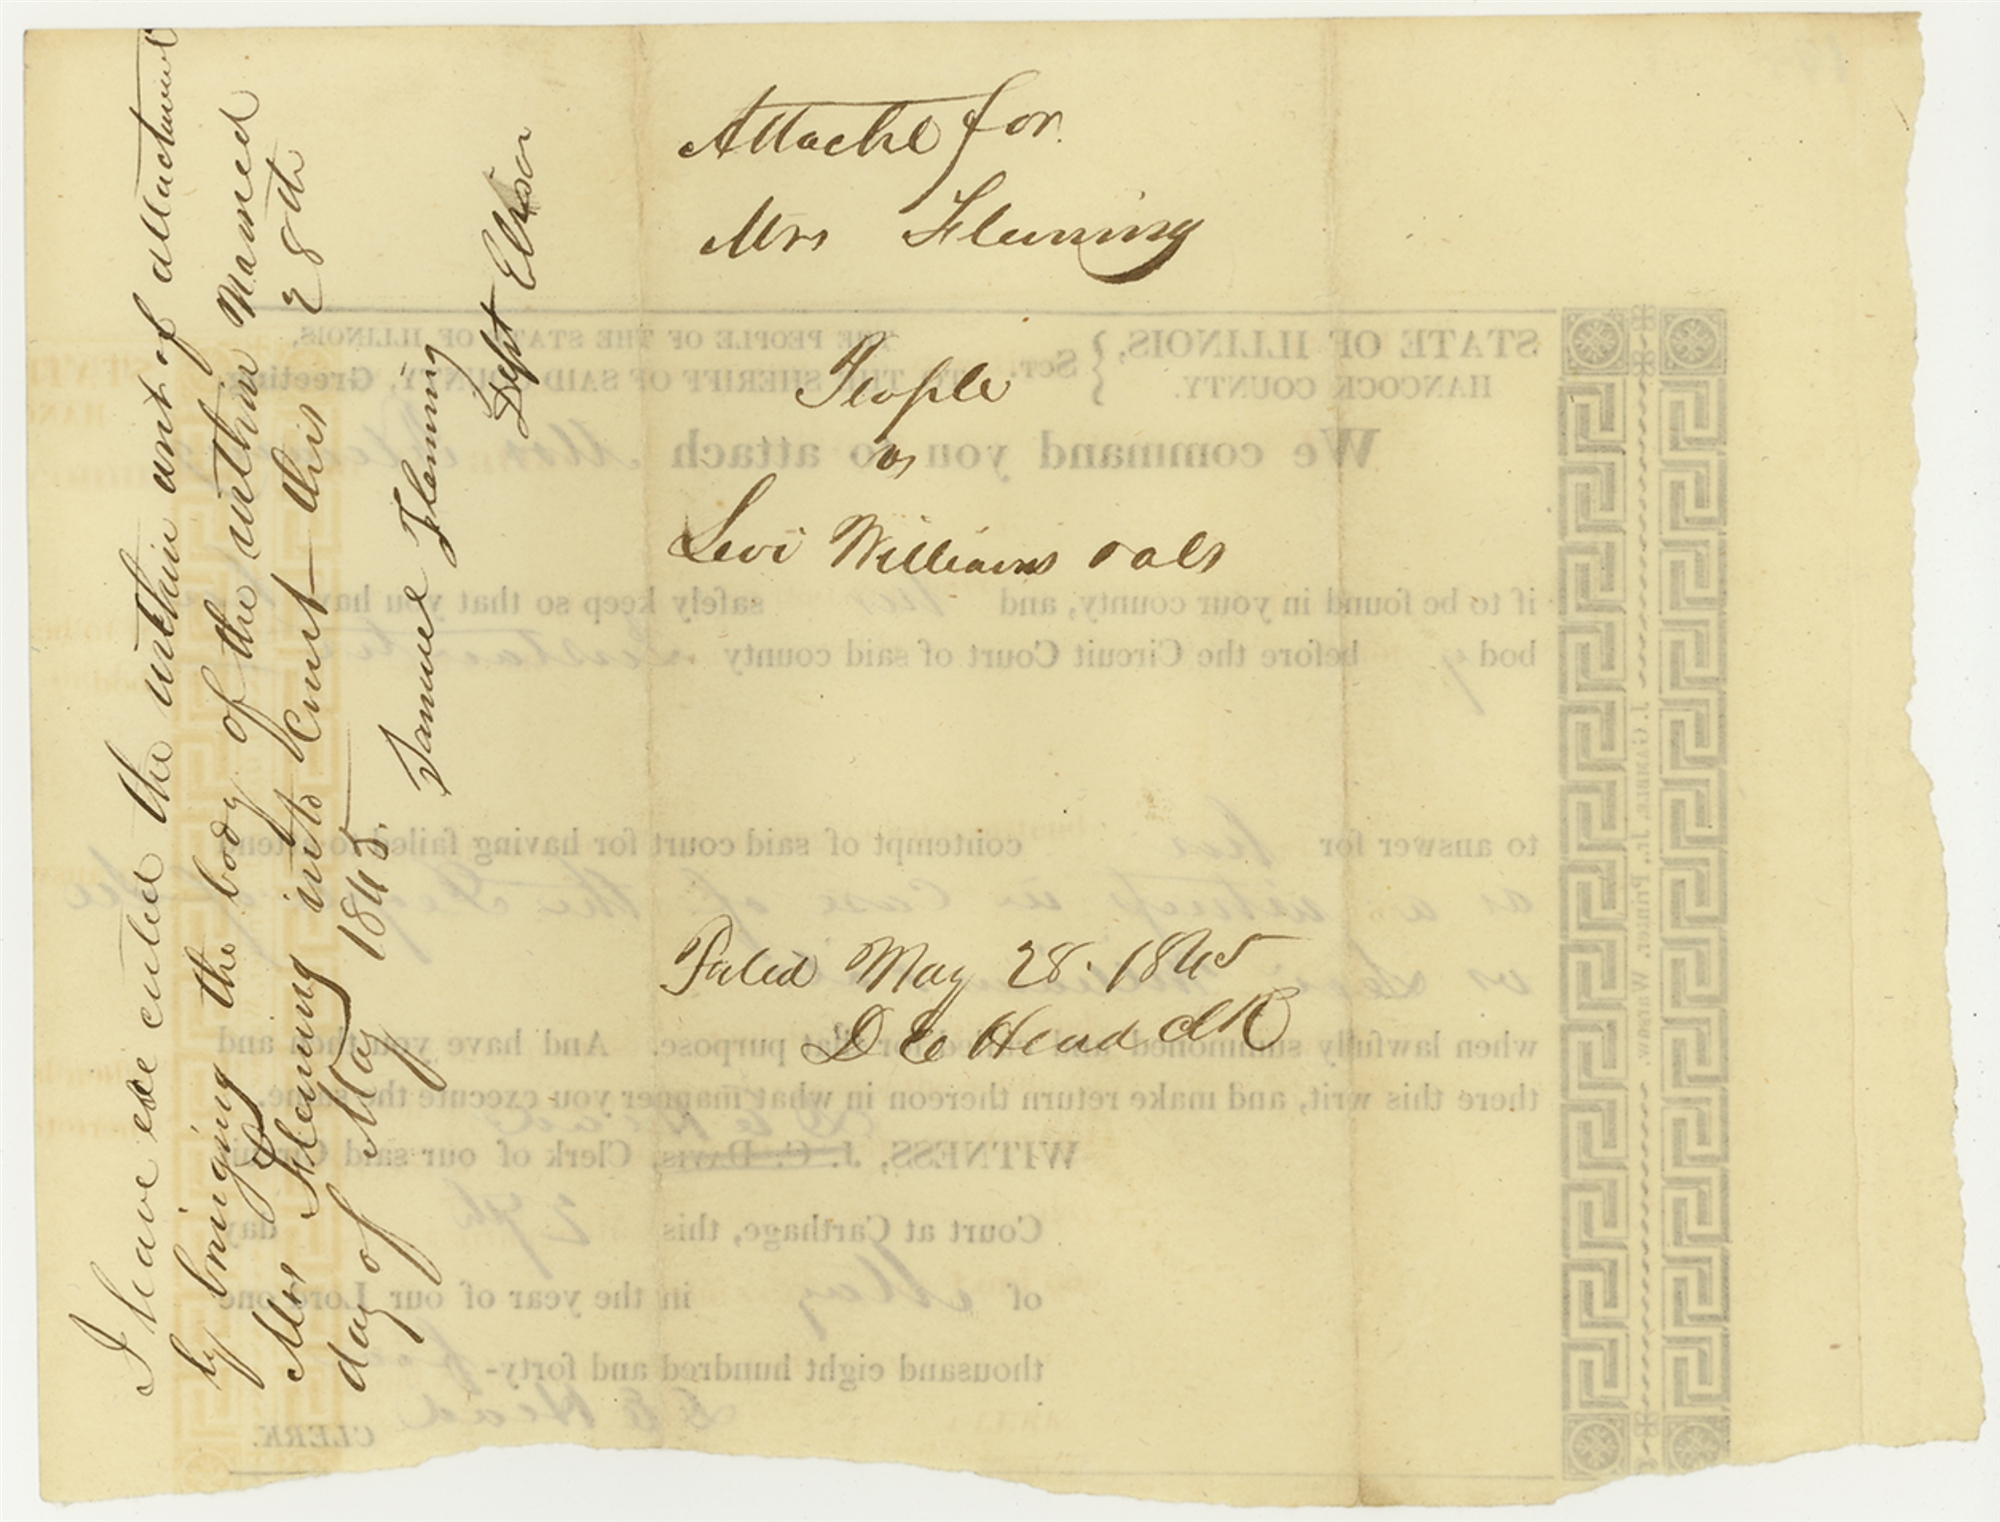 Attache for
Mrs Fleming
People
vs
Levi Williams & als
Filed May 28. 1845
D E Head Clk
I have executed the within writ of attachment
by bringing the body of the within named
Mrs Fleming into Court this 28th
day of May 1845.
Samuel Fleming
Dept Elisor
STATE OF ILLINOIS,
HANCOCK COUNTY.
} Sct.
THE PEOPLE OF THE STATE OF ILLINOIS,
TO THE SHERIFF OF SAID COUNTY, Greeting
We command you to attach Mrs Fleming
if to be found in your county, and her safely keep so that you have
body before the Circuit Court of said county Instanter
to answer for her contempt of said court for having failed to attend
as a witness in case of the People
vs Levi Williams
when lawfully summoned purpose. And have you then and
there this writ, and make return thereon in what manner you execute the same.
D E Head
WITNESS, J. C. DAVIS, Clerk of our said Circuit
Court at Carthage, this 27th day
of May in the year of our Lord one
thousand eight hundred and forty-
D E Head CLERK.
J. GAMBLE, Jr., Printer, Warsaw.